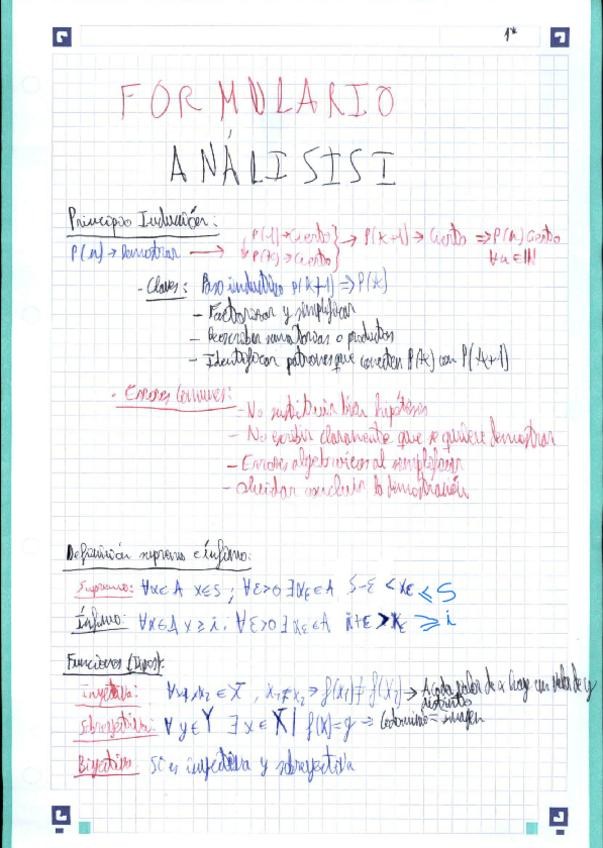 1*
FORMULARIO
ANÁLISIS I
Principio Inducción:
P(n) → Demostrar → P(1) → Cierto } → P(k+1) → Cierto ⇒ P(n) Cierto
P(k) → Cierto } ∀n∈ℕ!
- Claves: Paso inductivo P(k+1) ⇒ P(k)
- Factorizar y simplificar
- Reescribir sumatorias o productos
- Identificar patrones que conecten P(k) con P(k+1)
- Errores Comunes:
- No sustituir bien hipótesis
- No escribir claramente que se quiere demostrar
- Errores algebraicos al simplificar
- Olvidar concluir la demostración
Definición supremo e ínfimo:
Supremo: ∀x∈A x≤S ; ∀ε>0 ∃xε∈A S-ε < xε ≤ S
Ínfimo: ∀x∈A x≥i. ∀ε>0 ∃xε∈A i+ε > xε ≥ i
Funciones (Tipos):
Inyectiva: ∀x₁,x₂ ∈ X, x₁≠x₂ ⇒ f(x₁)≠f(x₂) → A cada valor de x hay un valor de y
distinto
Sobreyectiva: ∀y∈Y ∃x∈X | f(x)=y ⇒ Codominio = imagen
Biyectiva: Si es inyectiva y sobreyectiva